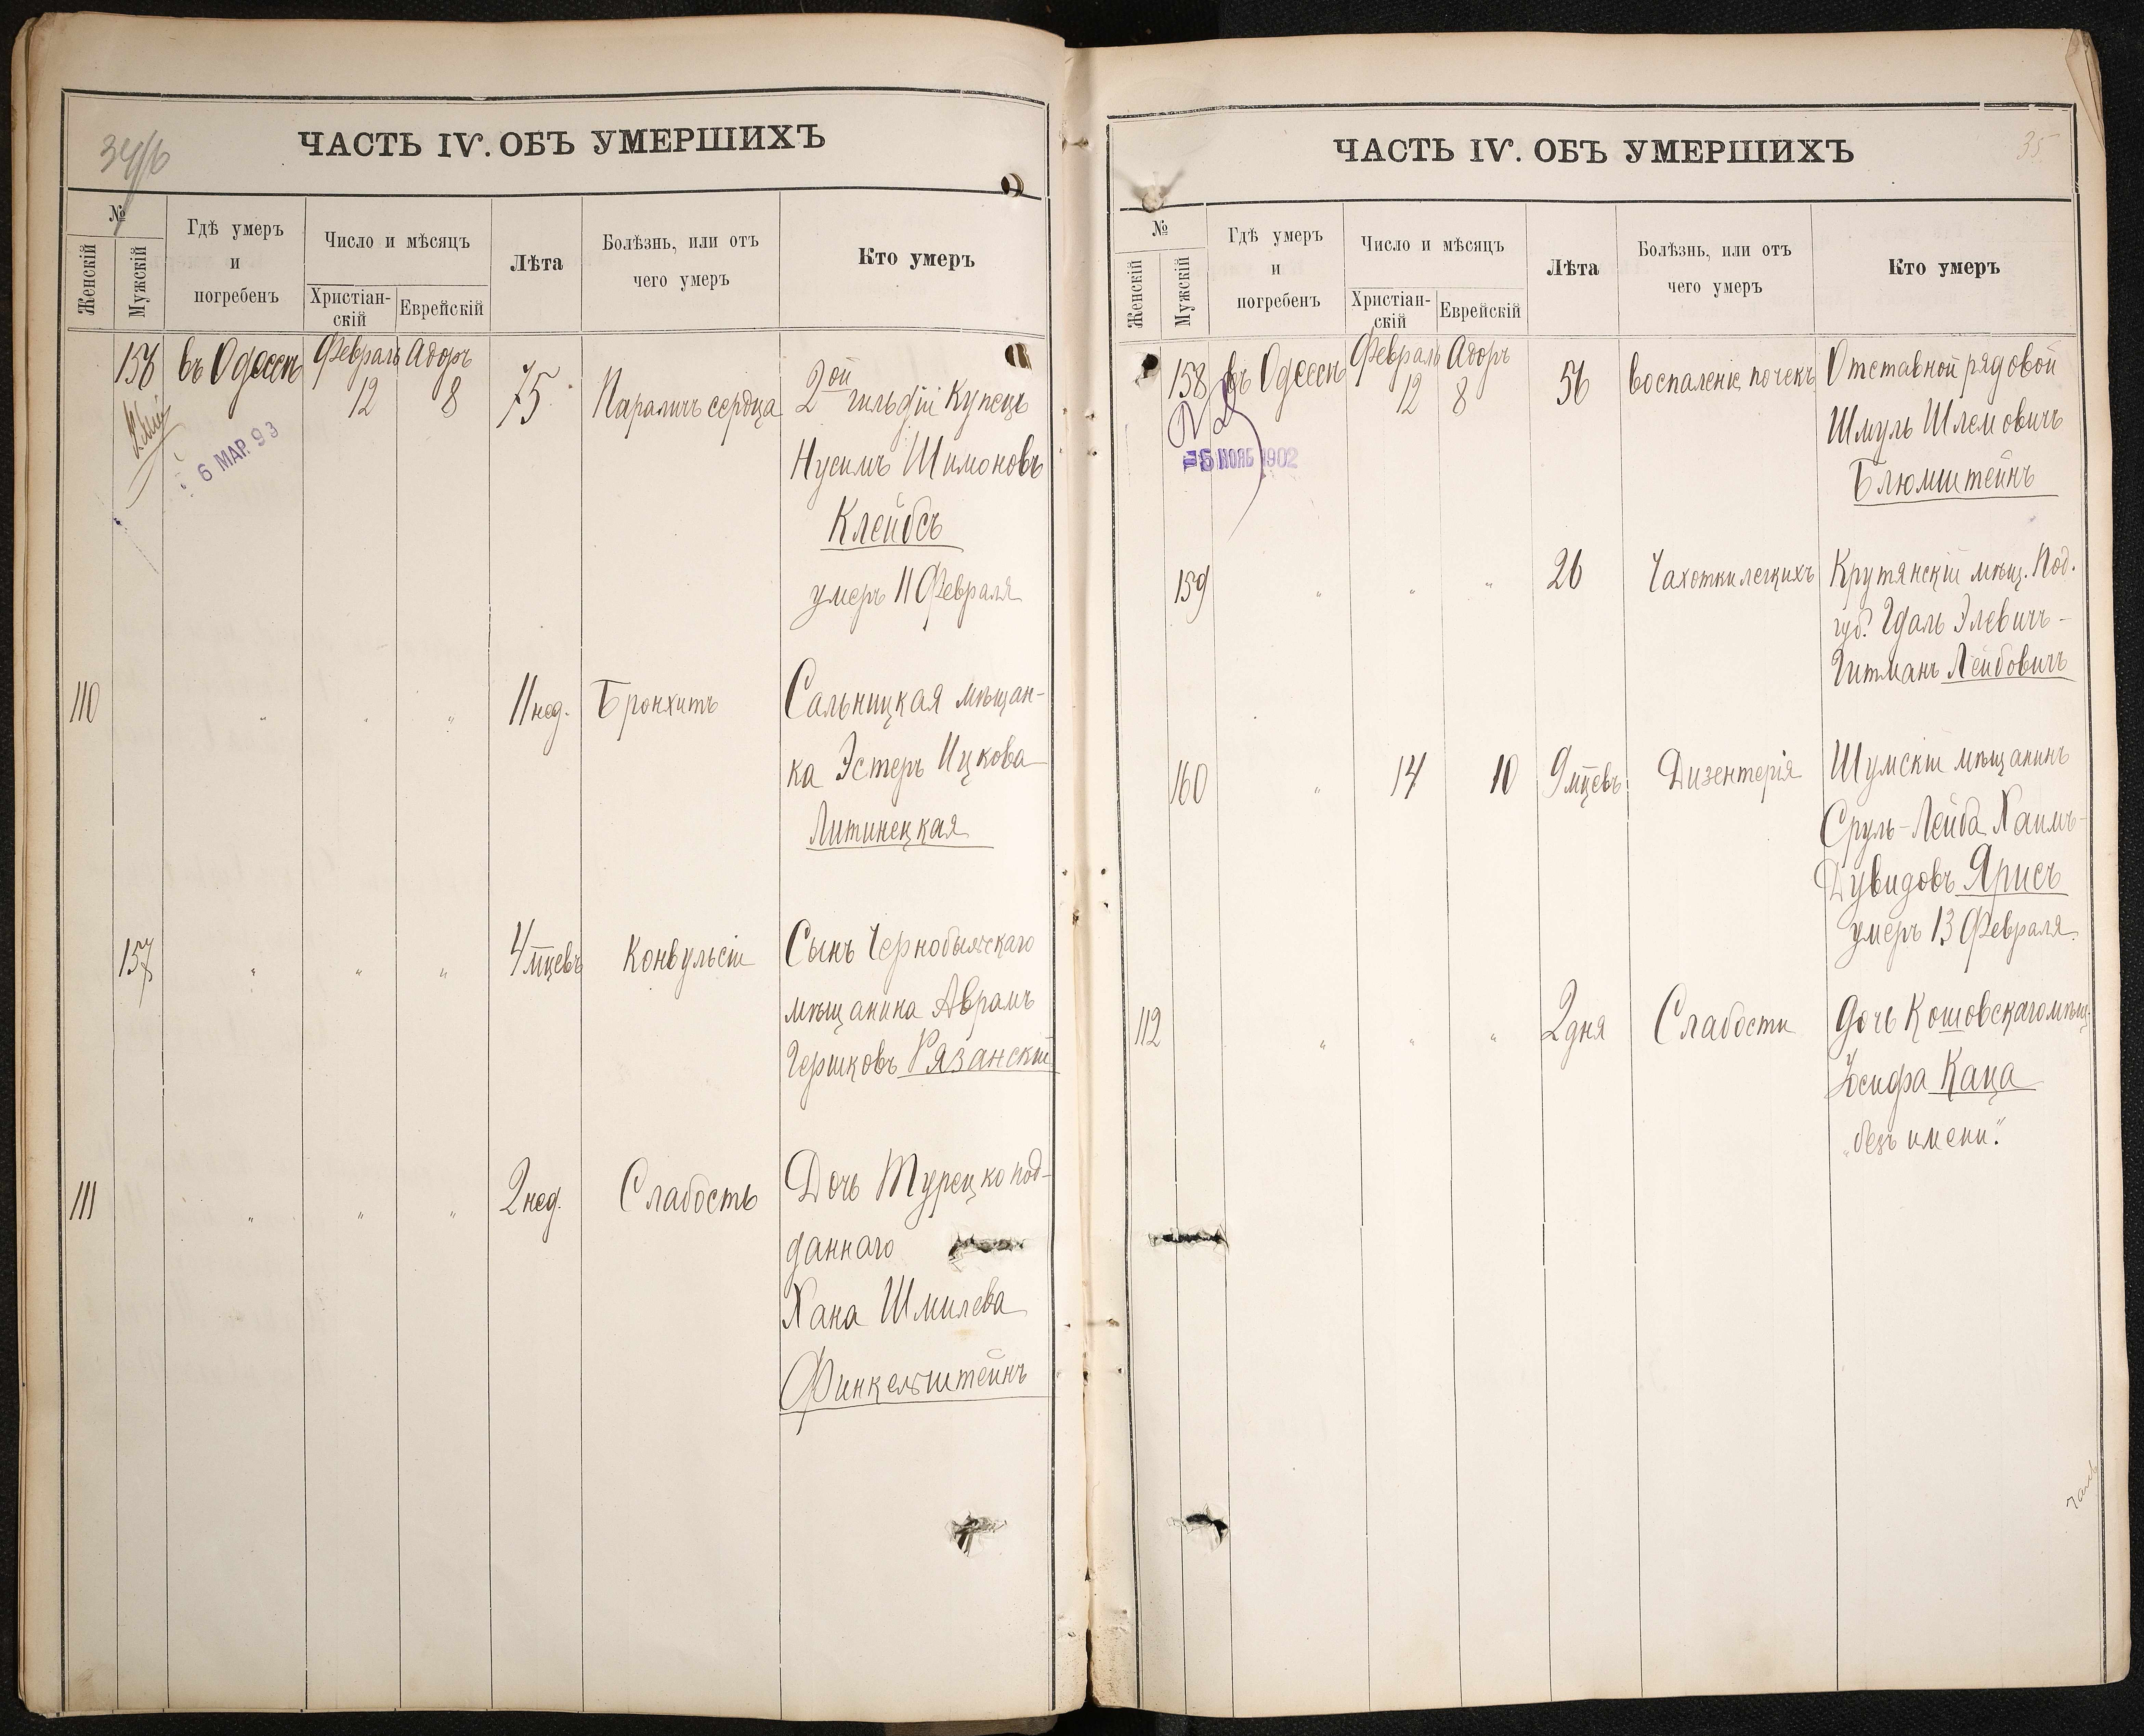 ЧАСТЬ IV. ОБЪ УМЕРШИХЪ
№
Женскій
Мужскій
Гдѣ умеръ
и
погребенъ
Число и мѣсяцъ
Христіан-
скій
Еврейскій
Лѣта
Болѣзнь, или отъ
чего умеръ
Кто умеръ
156 въ Одессѣ Февраль Адоръ
12 8 75 Параличъ сердца 2ой гильдіи купецъ
6 МАР. 93
Нусимъ Шимоновъ
Клейбсъ
умеръ 11 Февраля
110 " " " 11 нед. Бронхитъ Сальницкая мѣщан-
ка Эстеръ Ицкова
Литинецкая
157 " " " 4 мцевъ Конвульсіи Сынъ Чернобыльскаго
мѣщанина Аврамъ
Гершковъ Рязанскій
111 " " " 2 нед. Слабость Дочь Турецко под-
даннаго
Хана Шмилева
Финкельштейнъ
ЧАСТЬ IV. ОБЪ УМЕРШИХЪ
35
№
Женскій
Мужскій
Гдѣ умеръ
и
погребенъ
Число и мѣсяцъ
Христіан-
скій
Еврейскій
Лѣта
Болѣзнь, или отъ
чего умеръ
Кто умеръ
158 въ Одессѣ Февраль Адоръ
12 8 56 воспаленіе почекъ Отставной рядовой
5 НОЯБ 1902
Шмуль Шлемовичъ
Блюмштейнъ
159 " " " 26 Чахотки легкихъ Крутянскій мѣщ. Под.
губ. Гдаль Элевичъ-
Гитманъ Лейбовичъ
160 " 14 10 9 мцевъ Дизентерія Шумскій мѣщанинъ
Сруль-Лейба Хаимъ-
Дувидовъ Ярисъ
умеръ 13 Февраля.
112 " " " 2 дня Слабости Дочь Кошовскаго мѣщ.
Іосифа Каца
"безъ имени".